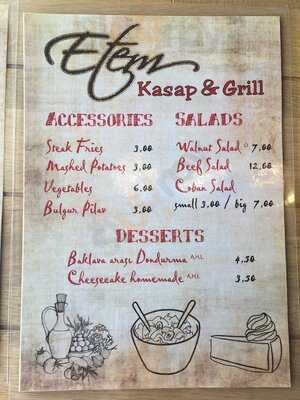 Etem
Kasap & Grill
ACCESSORIES
Steak Fries 3.00
Mashed Potatoes 3.00
Vegetables 6.00
Bulgur Pilav 3.00
SALADS
Walnut Salad G 7.00
Beef Salad 12.00
Coban Salad
small 3.00 / big 7.00
DESSERTS
Baklava arası Dondurma A,H,L 4.50
Cheesecake homemade A,H,L 3.50